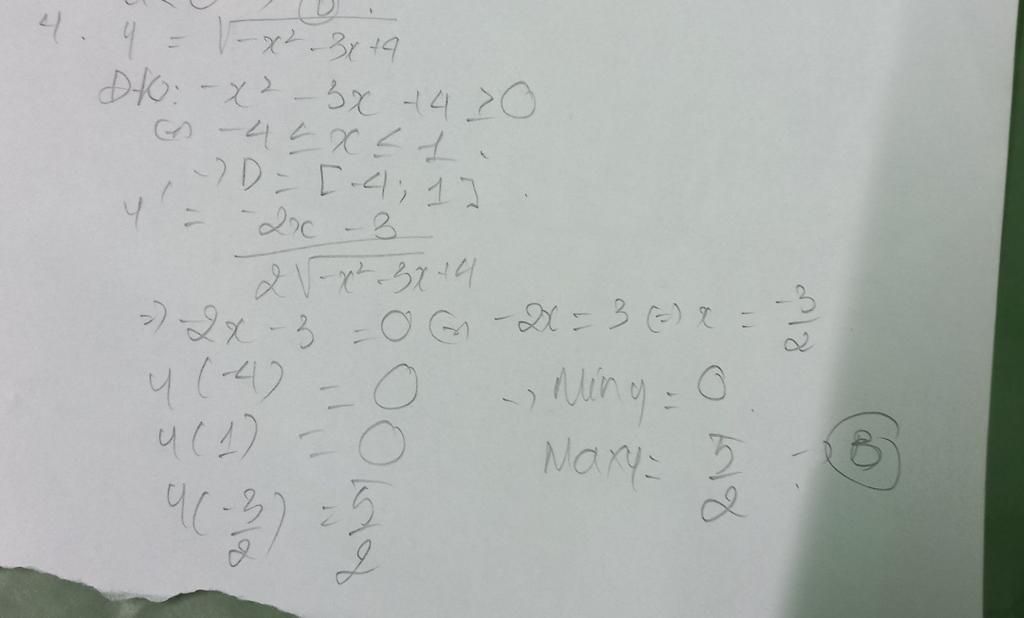 4. y = √-x² -3x+4
ĐK: -x² - 3x +4 ≥ 0
⇔ -4 ≤ x ≤ 1.
→ D = [-4; 1]
y' = -2x - 3 / 2√-x² -3x+4
⇒ -2x - 3 = 0 ⇔ -2x = 3 ⇔ x = -3/2
y(-4) = 0 → Min y = 0.
y(1) = 0
Max y = 5/2 : B
y(-3/2) = 5/2